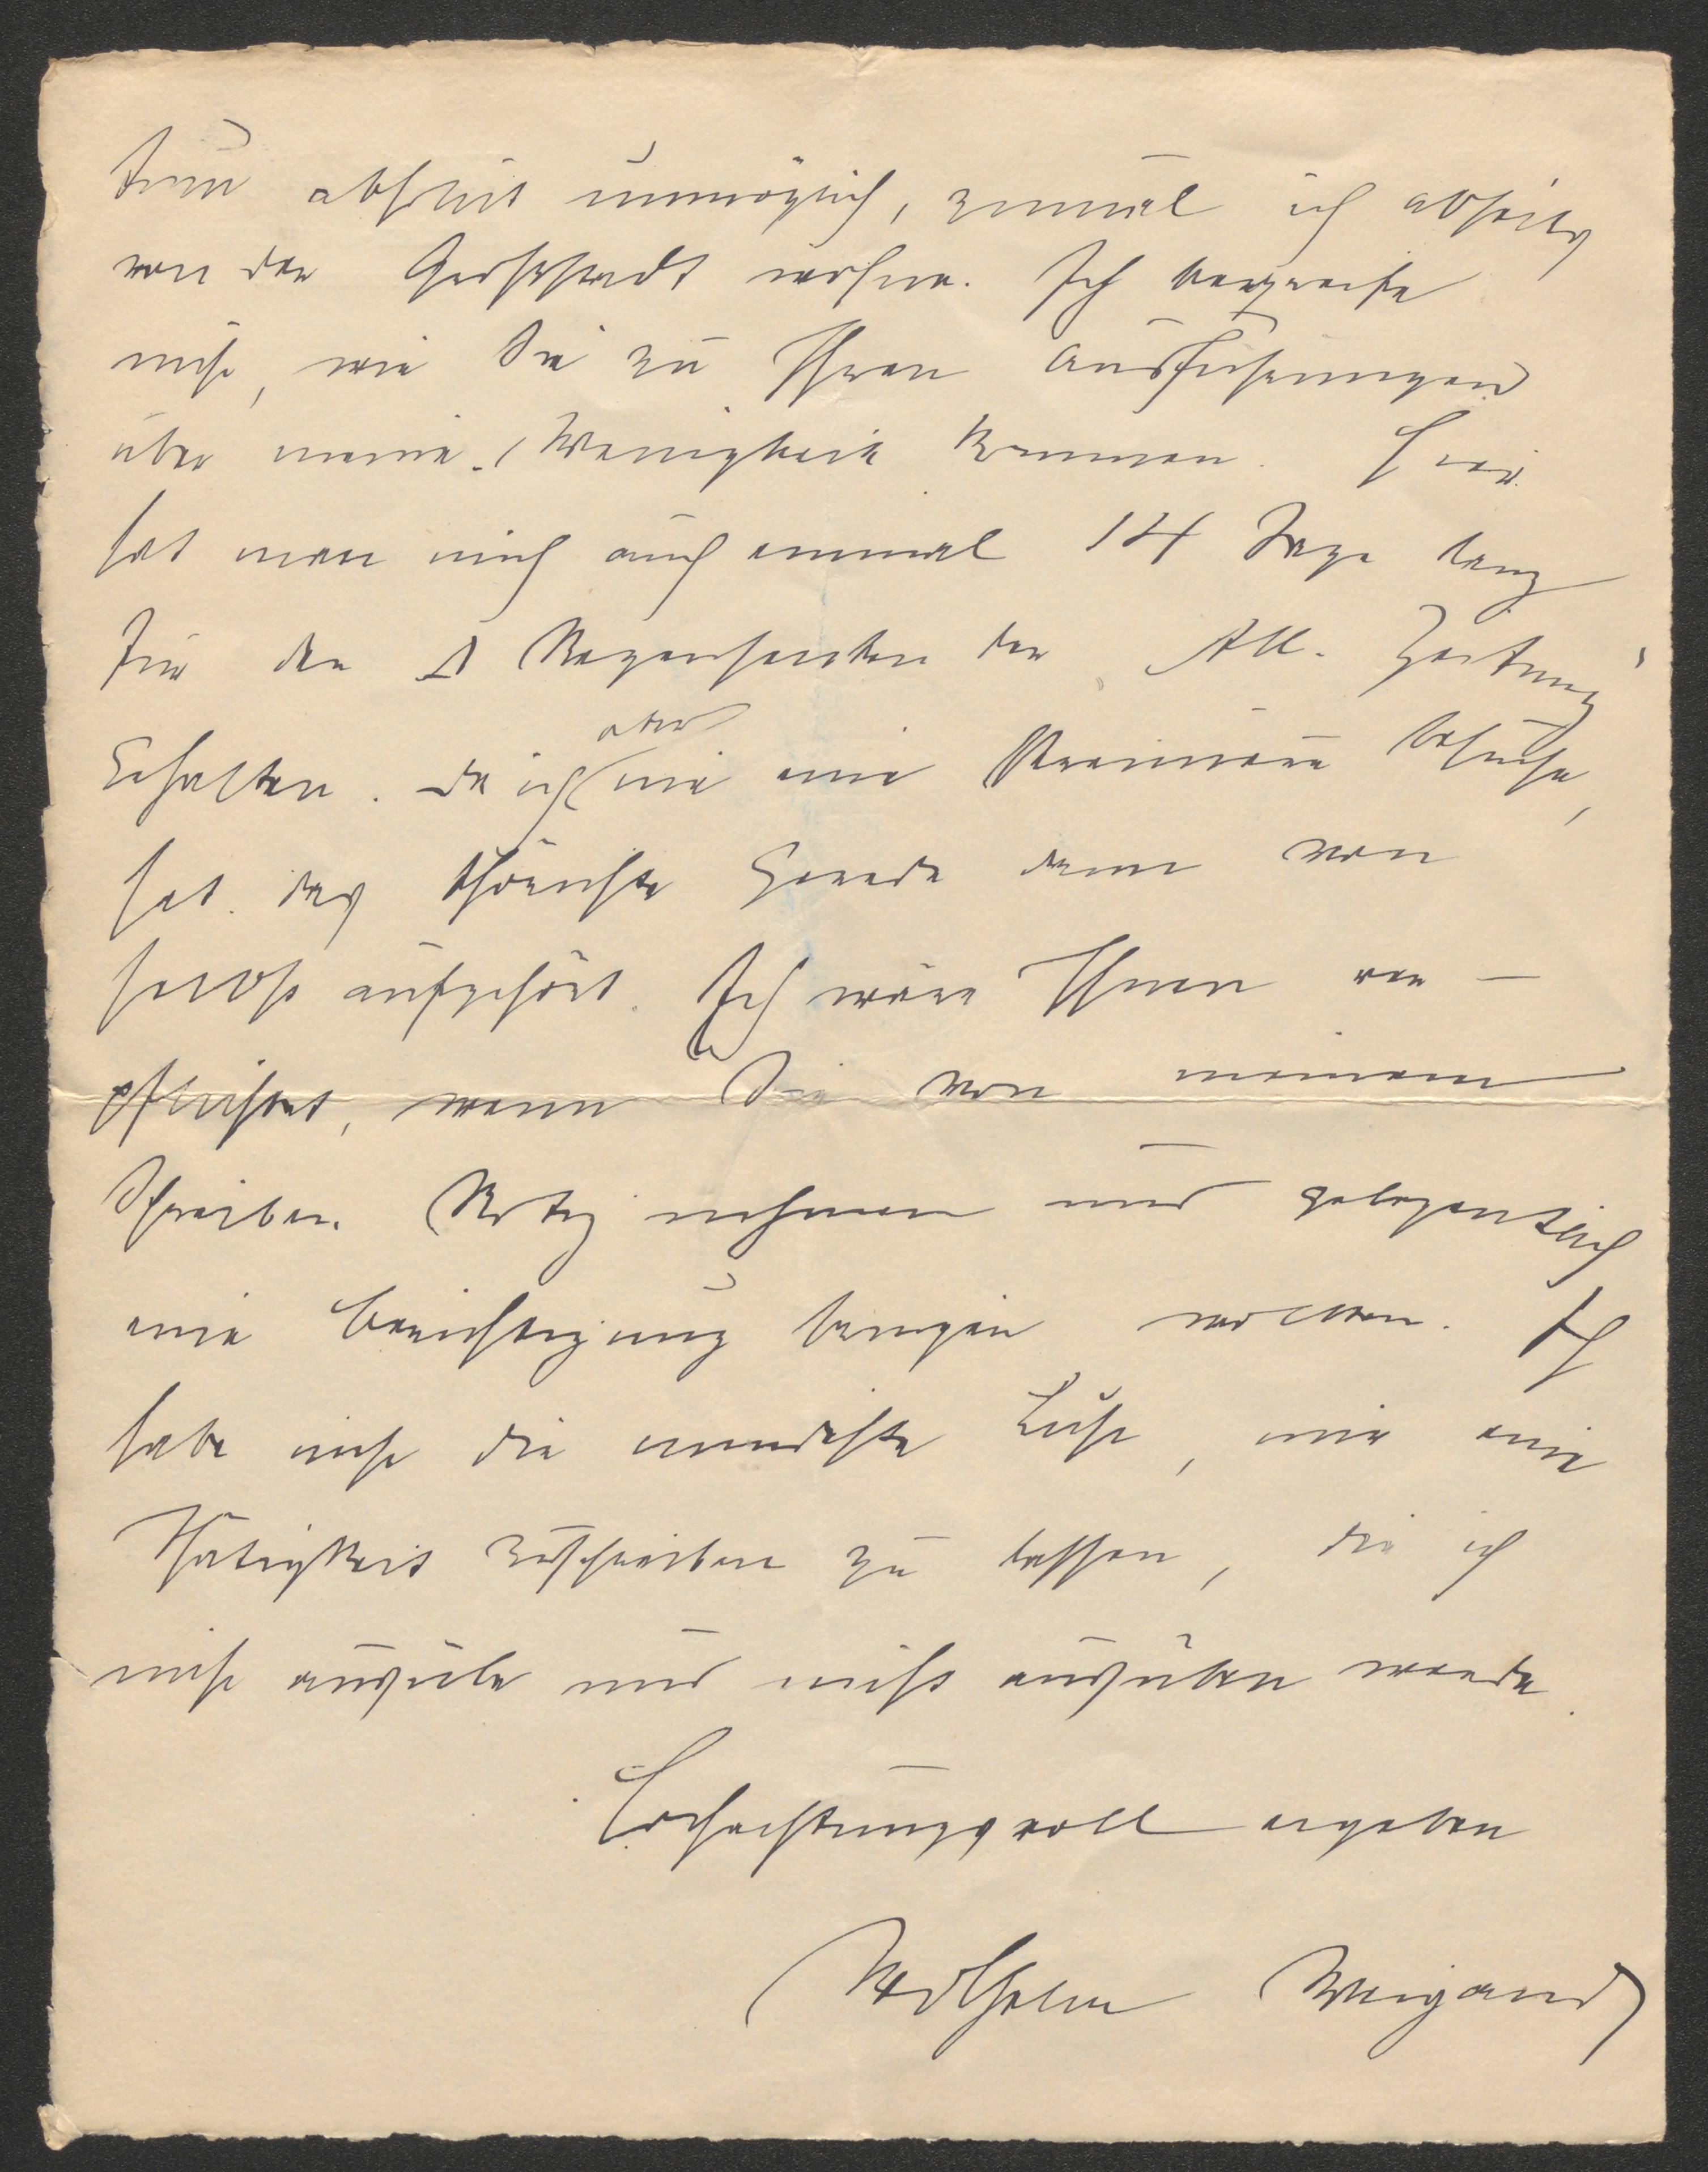 absolut unmöglich, zumal ich abseits
von der Großstadt wohne. Ich begreife
nicht, wie Sie zu Ihren Ausführungen
über meine Wenigkeit kommen. Hier
hat man mich auch einmal 14 Tage lang
für den Rezensenten der „All. Zeitung“
gehalten. Da ich aber nie eine Premiere besuche,
hat das thörichte Gerede dann von
selbst aufgehört. Ich wäre Ihnen ver-
pflichtet, wenn Sie von meinem
Schreiben Notiz nehmen und gelegentlich
eine Berichtigung bringen wollten. Ich
habe nicht die mindeste Lust, mir eine
Thätigkeit zuschreiben zu lassen, die ich
nicht ausübe und nicht ausüben werde.
Hochachtungsvoll ergeben
Wilhelm Weigand